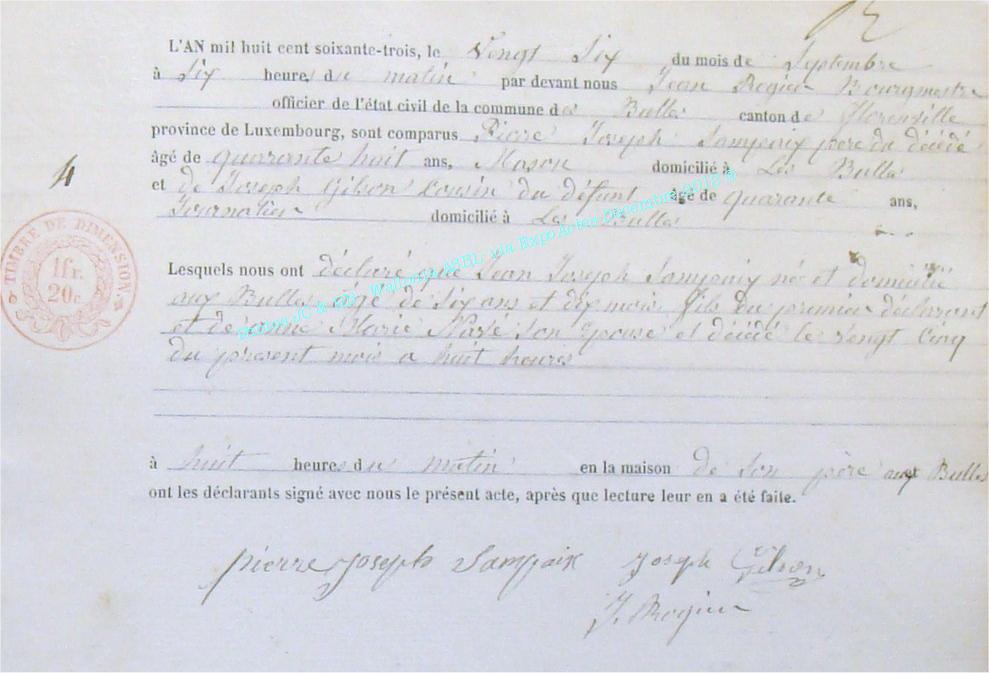 L'AN mil huit cent soixante-trois, le Vengt Six du mois de Septembre
à Six heures du matin par devant nous Jean Rogier Bourgmestre
officier de l'état civil de la commune des Bulles canton de Florenville
province de Luxembourg, sont comparus Pierre Joseph Sampaix pere du décédé
âgé de quarante huit ans, Mason domicilié à Les Bulles
4
et de Joseph Gilson Cousin du défunt âgé de quarante ans,
Journalier domicilié à Les Bulles
TIMBRE DE DIMENSION
1fr.
20c.
Lesquels nous ont déclaré que Jean Joseph Sampaix né et domicilié
aux Bulles âgé de Six ans et dix mois fils du premier déclarant
et de anne Marie Son epouse et décédé le vengt Cinq
du présent mois a huit heures
à huit heures du matin en la maison de Son père aux Bulles
ont les déclarants signé avec nous le présent acte, après que lecture leur en a été faite.
pierre joseph Sampaix Joseph Gilson
J. Rogier
Wallonia ASBL, via Expo Actes Decembre 2018 ®